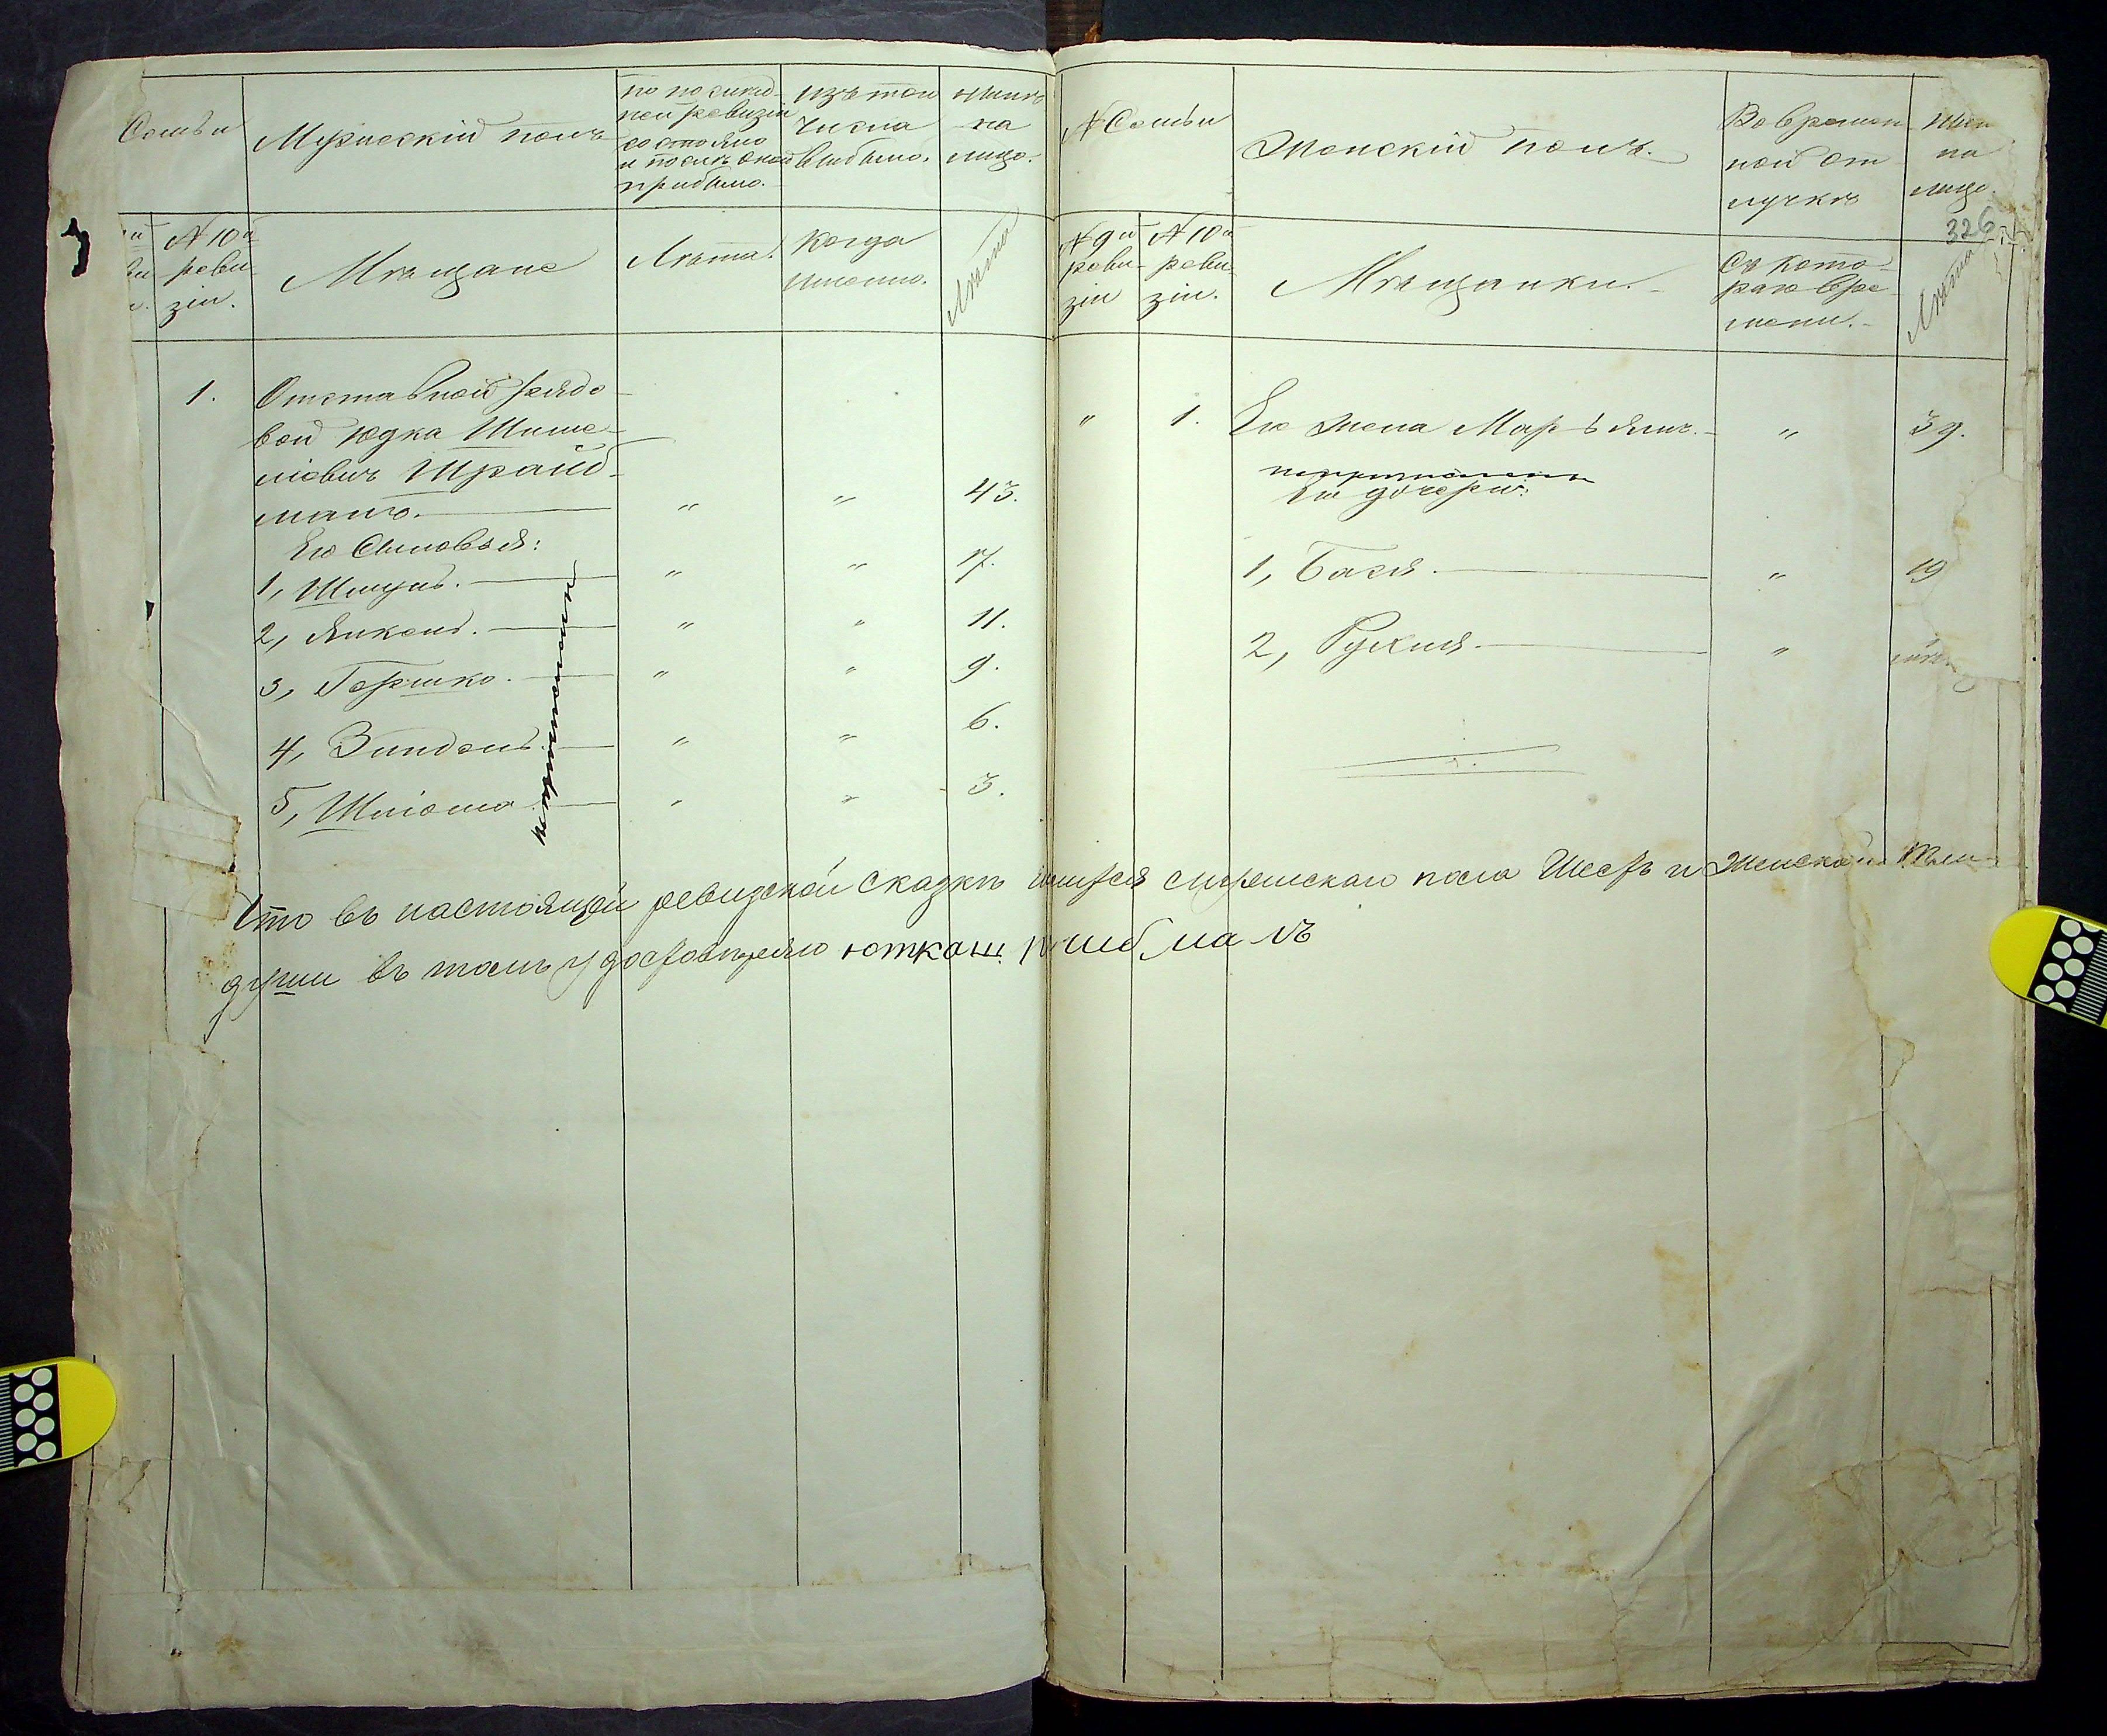 Семьи
Мужескій полъ
по послѣд-
ней ревизіи
состояло
и послѣ оной
прибыло.
Изъ того
числа
выбыло.
нынѣ
на
лицо.
№ 10й
реви-
зіи.
Мѣщане
Лѣта.
Когда
именно.
Лѣта
1. Отставной рядо-
вой Юдка Шмие-
ліовичъ Шрайб-
манъ. " " 43.
Его Сыновья:
1, Шмуль. " " 17.
2, Янкель. " " 11.
3, Гершко. " " 9.
4, Зиндель. " " 6.
5, Шліома " " 3.
№ Семьи
Женскій полъ.
Во времен-
ной от-
лучкѣ
на
лицо.
326
№ 9й
реви-
зіи
№ 10й
реви-
зіи.
Мѣщанки.
Съ кото-
раго вре-
мени.
Лѣта
" 1. Его жена Марьямъ. " 39.
Ея дочери:
1, Бася. " 19
2, Рухля " 
Что въ настоящей ревизской сказкѣ мужескаго пола Шесть и Женскаго Три
души въ томъ удостовѣряю юткаш